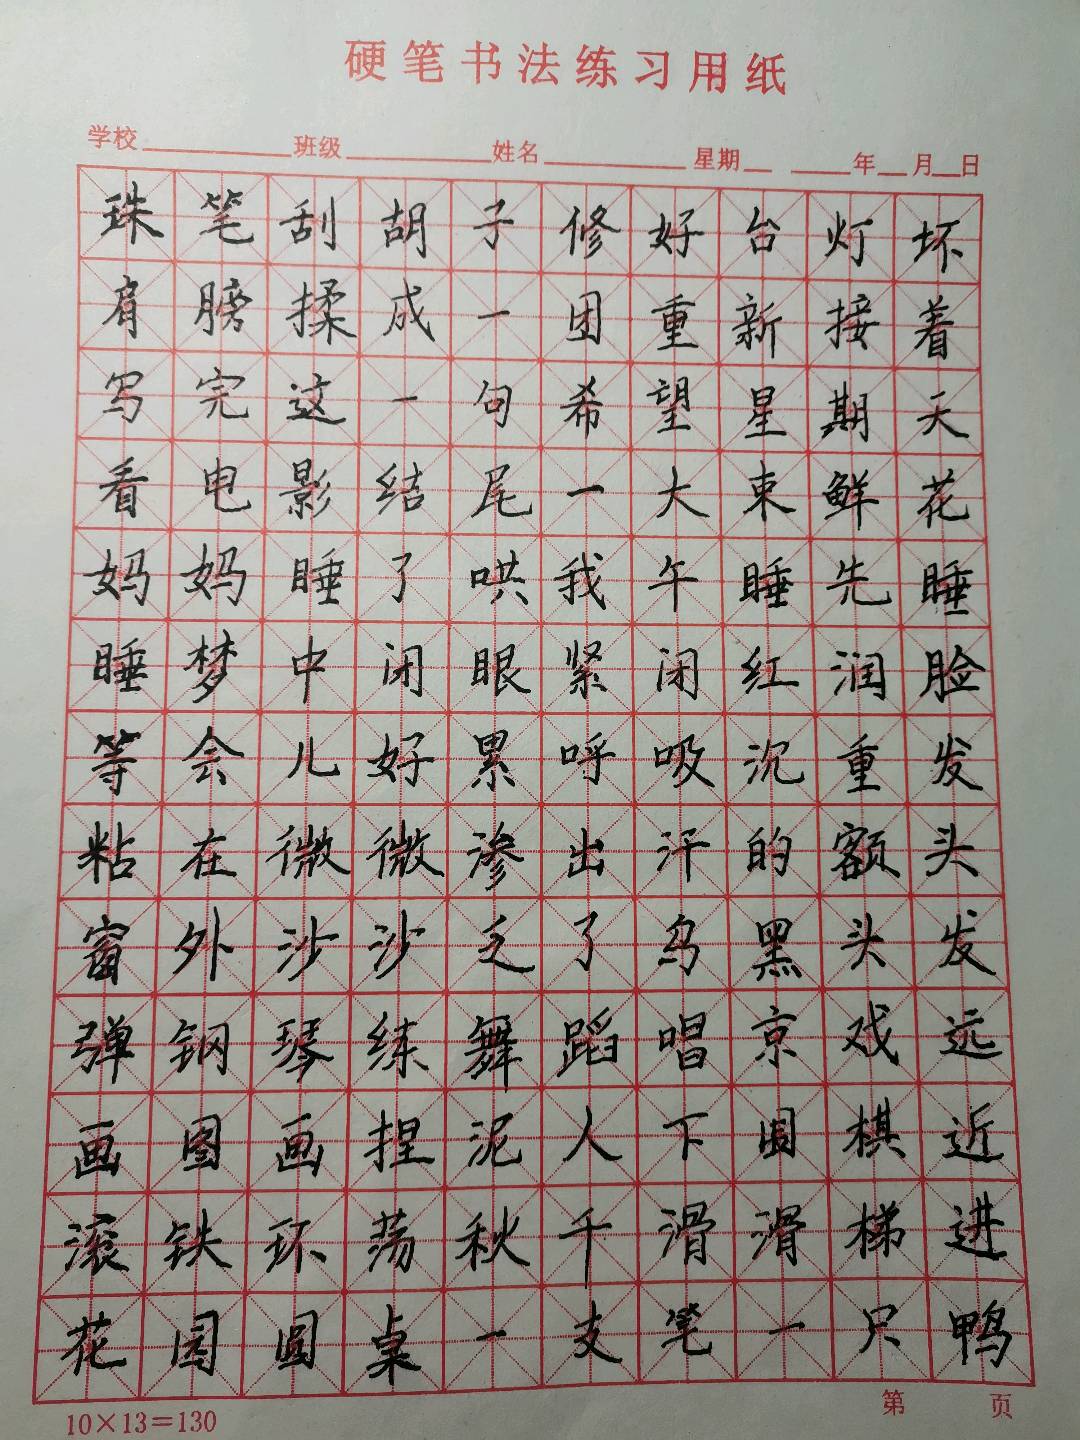 硬笔书法练习用纸
学校 班级 姓名 星期 年 月 日
珠笔刮胡子修好台灯坏
肩膀揉成一团重新接着
写完这一句希望星期天
看电影结尾一大束鲜花
妈妈睡了哄我午睡先睡
睡梦中闭眼紧闭红润脸
等会儿好累呼吸沉重发
粘在微微渗出汗的额头
窗外沙沙乏了乌黑头发
弹钢琴练舞蹈唱京戏远
画图画捏泥人下围棋近
滚铁环荡秋千滑滑梯进
花园圆桌一支笔一只鸭
10×13=130
第 页